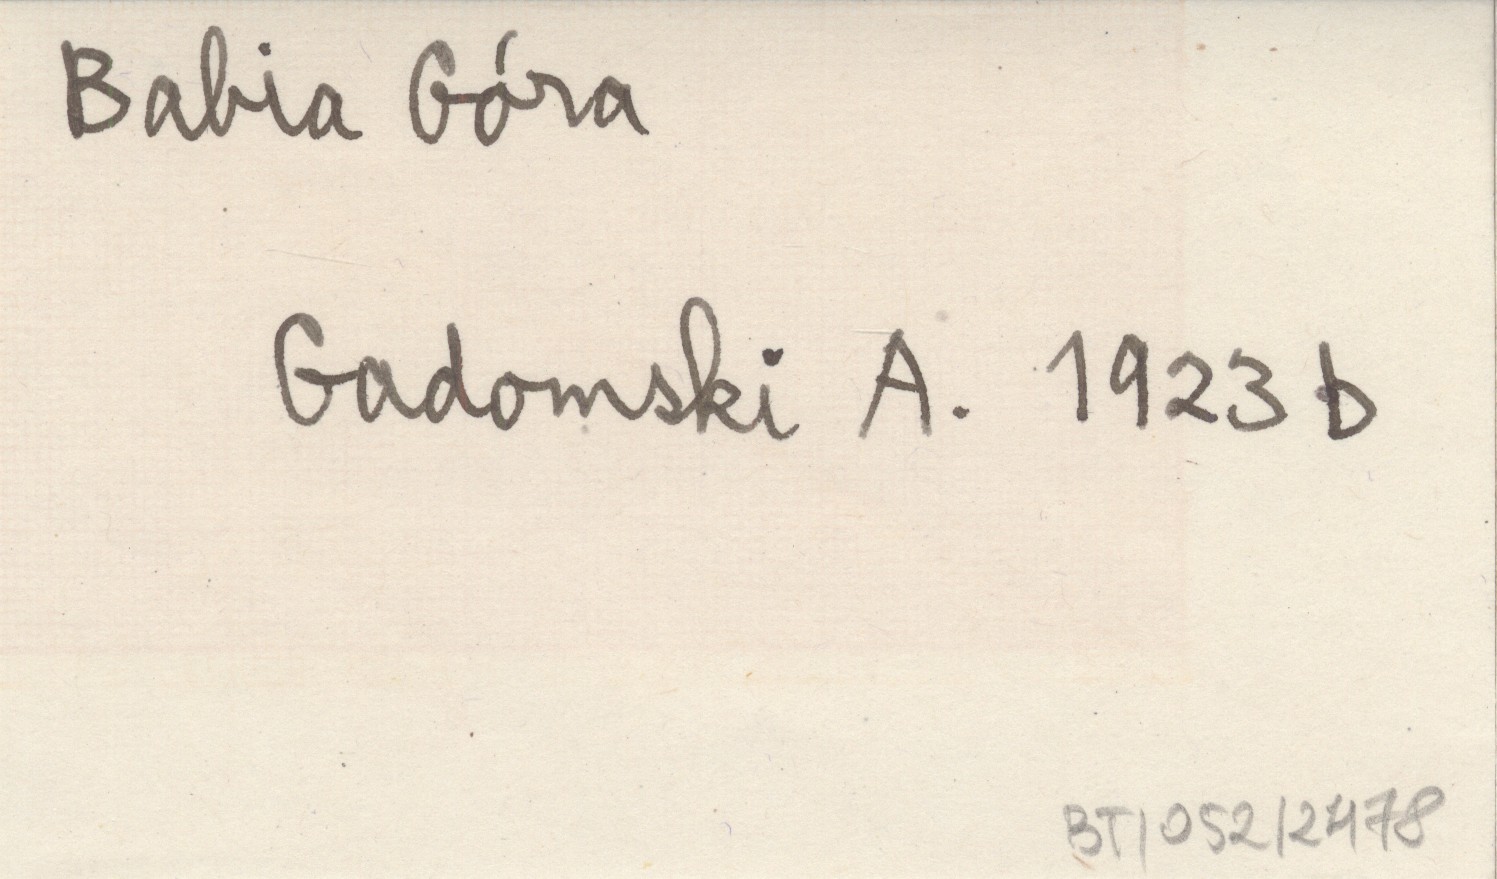 Babia Góra
Gadomski A. 1923 b
BT/052/2478